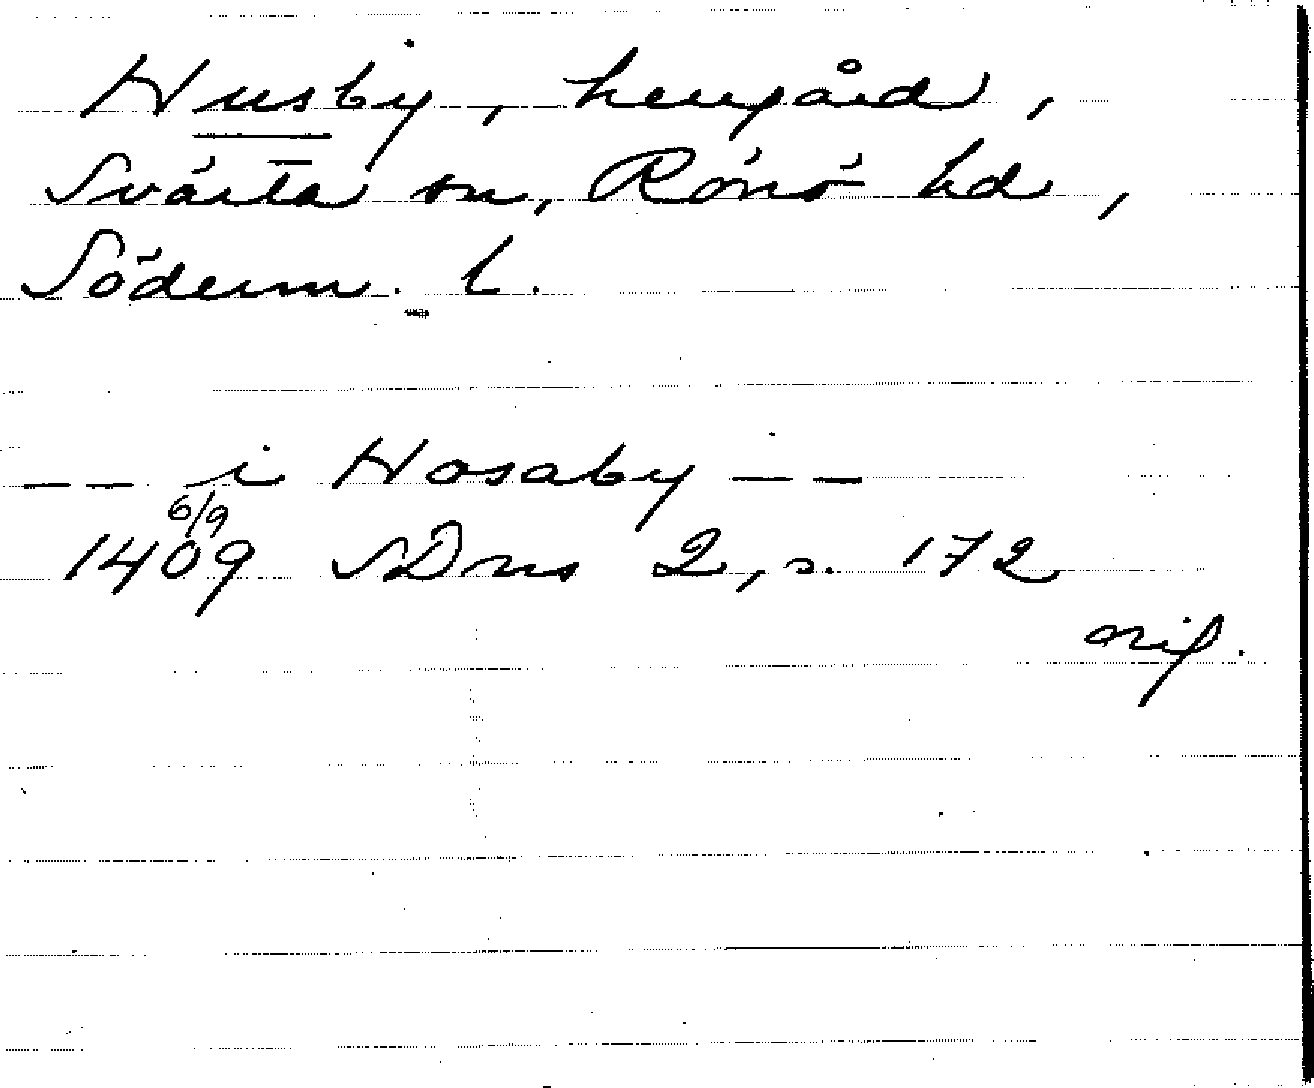 Husby, herrgård,
Svärta sn, Rönö hd,
Söderm. l.
-- i Hosaby --
1409 6/9 SDns 2, s. 172
orig.